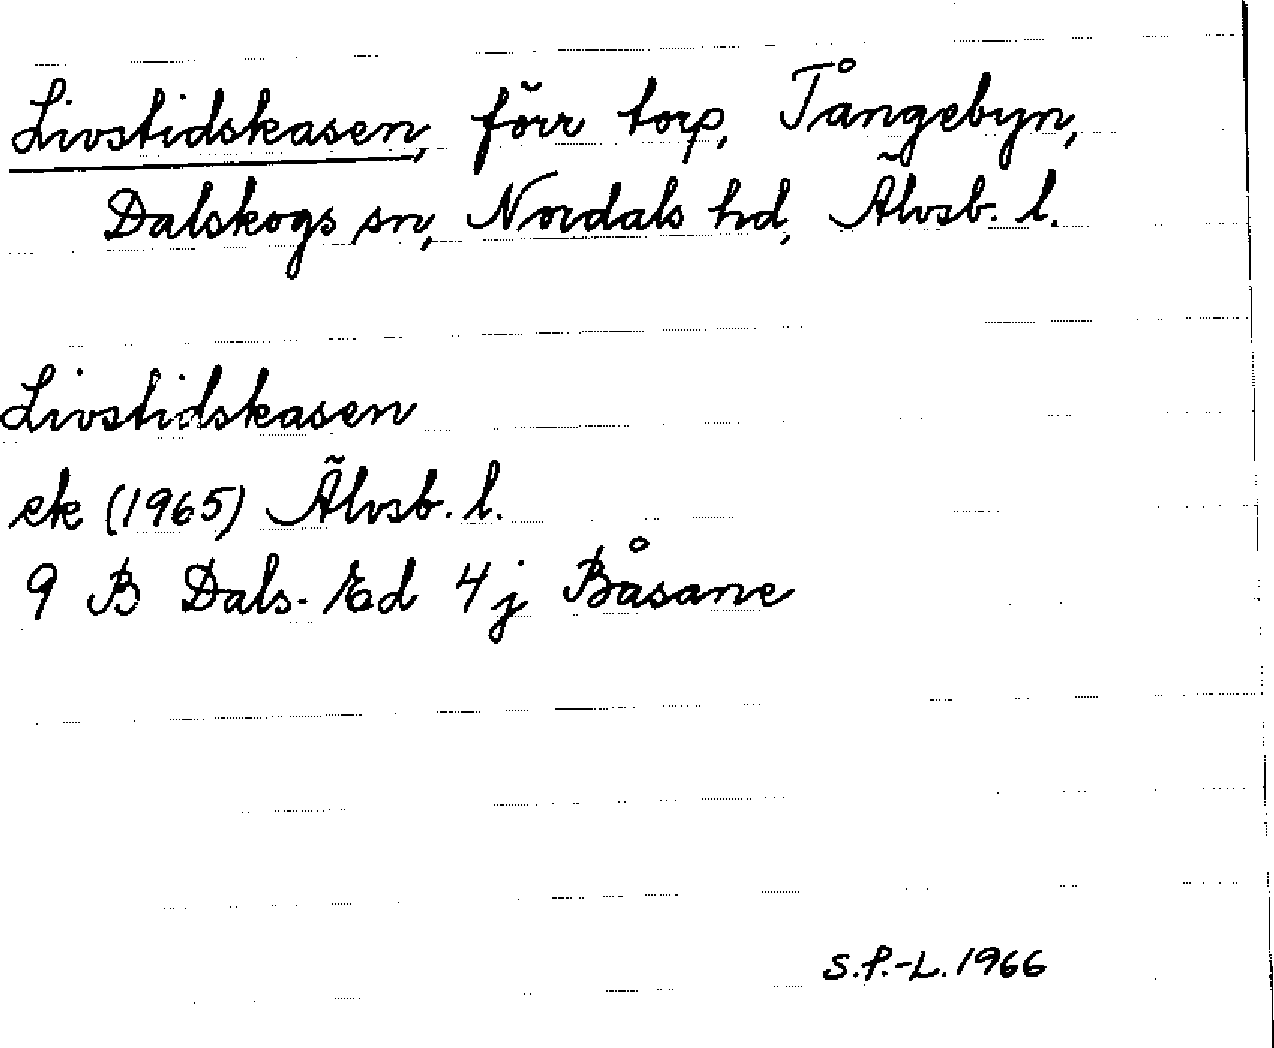 Livstidskasen, förr torp, Tångebyn,
Dalskogs sn, Nordals hd, Älvsb. l.
Livstidskasen
ek (1965) Älvsb. l.
9 B Dals-Ed 4 j Båsane
S.P.-L. 1966